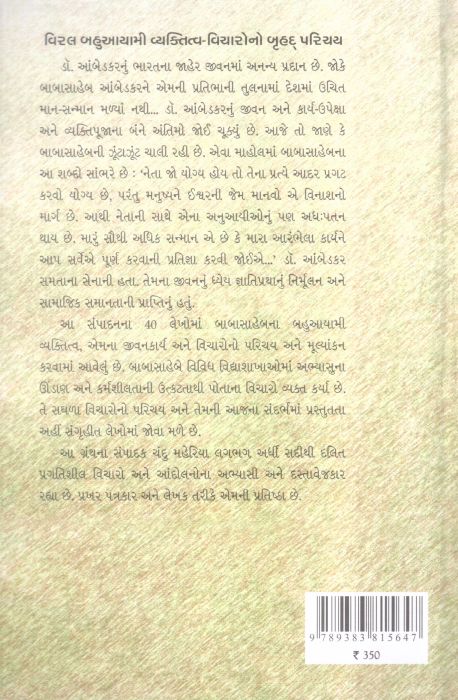 વિરલ બહુઆયામી વ્યક્તિત્વ-વિચારોનો બૃહદ્ પરિચય
ડૉ. આંબેડકરનું ભારતના જાહેર જીવનમાં અનન્ય પ્રદાન છે. જોકે
બાબાસાહેબ આંબેડકરને એમની પ્રતિભાની તુલનામાં દેશમાં ઉચિત
માન-સન્માન મળ્યાં નથી... ડૉ. આંબેડકરનું જીવન અને કાર્ય-ઉપેક્ષા
અને વ્યક્તિપૂજાના બંને અંતિમો જોઈ ચૂક્યું છે. આજે તો જાણે કે
બાબાસાહેબની ઝૂંટાઝૂંટ ચાલી રહી છે. એવા માહોલમાં બાબાસાહેબના
આ શબ્દો સાંભરે છે : ‘નેતા જો યોગ્ય હોય તો તેના પ્રત્યે આદર પ્રગટ
કરવો યોગ્ય છે, પરંતુ મનુષ્યને ઈશ્વરની જેમ માનવો એ વિનાશનો
માર્ગ છે. આથી નેતાની સાથે એના અનુઆયીઓનું પણ અધઃપતન
થાય છે. મારું સૌથી અધિક સન્માન એ છે કે મારા આરંભેલા કાર્યને
આપ સર્વેએ પૂર્ણ કરવાની પ્રતિજ્ઞા કરવી જોઈએ...’ ડૉ. આંબેડકર
સમતાના સેનાની હતા. તેમના જીવનનું ધ્યેય જ્ઞાતિપ્રથાનું નિર્મૂલન અને
સામાજિક સમાનતાની પ્રાપ્તિનું હતું.
આ સંપાદનના 40 લેખોમાં બાબાસાહેબના બહુઆયામી
વ્યક્તિત્વ, એમના જીવનકાર્ય અને વિચારોનો પરિચય અને મૂલ્યાંકન
કરવામાં આવેલું છે. બાબાસાહેબે વિવિધ વિદ્યાશાખાઓમાં અભ્યાસુના
ઊંડાણ અને કર્મશીલતાની ઉત્કટતાથી પોતાના વિચારો વ્યક્ત કર્યા છે.
તે સઘળા વિચારોનો પરિચય અને તેમની આજના સંદર્ભમાં પ્રસ્તુતતા
અહીં સંગૃહીત લેખોમાં જોવા મળે છે.
આ ગ્રંથના સંપાદક ચંદુ મહેરિયા લગભગ અર્ધી સદીથી દલિત
પ્રગતિશીલ વિચારો અને આંદોલનોના અભ્યાસી અને દસ્તાવેજકાર
રહ્યા છે. પ્રખર પત્રકાર અને લેખક તરીકે એમની પ્રતિષ્ઠા છે.
9 789383 815647
₹ 350